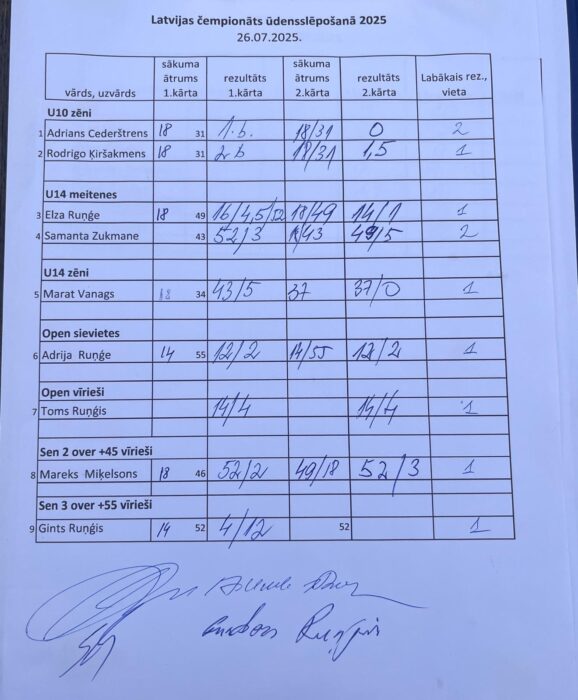 Latvijas čempionāts ūdensslēpošanā 2025
26.07.2025.
vārds, uzvārds sākuma ātrums 1.kārta rezultāts 1.kārta sākuma ātrums 2.kārta rezultāts 2.kārta Labākais rez., vieta
U10 zēni
1 Adrians Cederštrens 18 31 1.b. 18/31 0 2
2 Rodrigo Ķiršakmens 18 31 b 18/31 1,5 1
U14 meitenes
3 Elza Ruņģe 18 49 16/4,5/52 18/49 14/1 1
4 Samanta Zukmane 43 52/3 /43 49/5 2
U14 zēni
5 Marat Vanags 18 34 43/5 37 37/0 1
Open sievietes
6 Adrija Ruņģe 14 55 12/2 14/55 12/2 1
Open vīrieši
7 Toms Ruņģis 14/4 14/4 1
Sen 2 over +45 vīrieši
8 Mareks Miķelsons 18 46 52/2 49/18 52/3 1
Sen 3 over +55 vīrieši
9 Gints Ruņģis 14 52 4/12 52 1